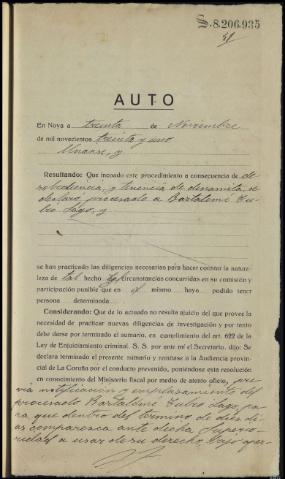 S.8.206.935
AUTO
En Noya a treinta de Noviembre
de mil novecientos treinta y uno
Resultando: Que incoado este procedimiento a consecuencia de de-
sobediencia, y tenencia de dinamita se
declaro procesado a Bartolomé Tu-
bio Lago, y
se han practicado las diligencias necesarias para hacer constar la natura-
leza de tal hecho y circunstancias concurridas en su comisión y
participación punible que en el mismo haya podido tener
persona determinada
Considerando: Que de lo actuado no resulta ajuicio del que provee la
necesidad de practicar nuevas diligencias de investigación y por tanto
debe darse por terminado el sumario, en cumplimiento del art. 622 de la
Ley de Enjuiciamiento criminal. S. S. por ante mí el Secretario, dijo: Se
declara terminado el presente sumario y remítase a la Audiencia provincial
de La Coruña por el conducto prevenido, poniéndose esta resolución
en conocimiento del Ministerio fiscal por medio de atento oficio, pre-
via notificación y emplazamiento del
procesado Bartolomé Tubio Lago, pa-
ra que dentro del termino de diez di-
as comparezca ante dicha Superio-
ridad a usar de su derecho bajo aper-